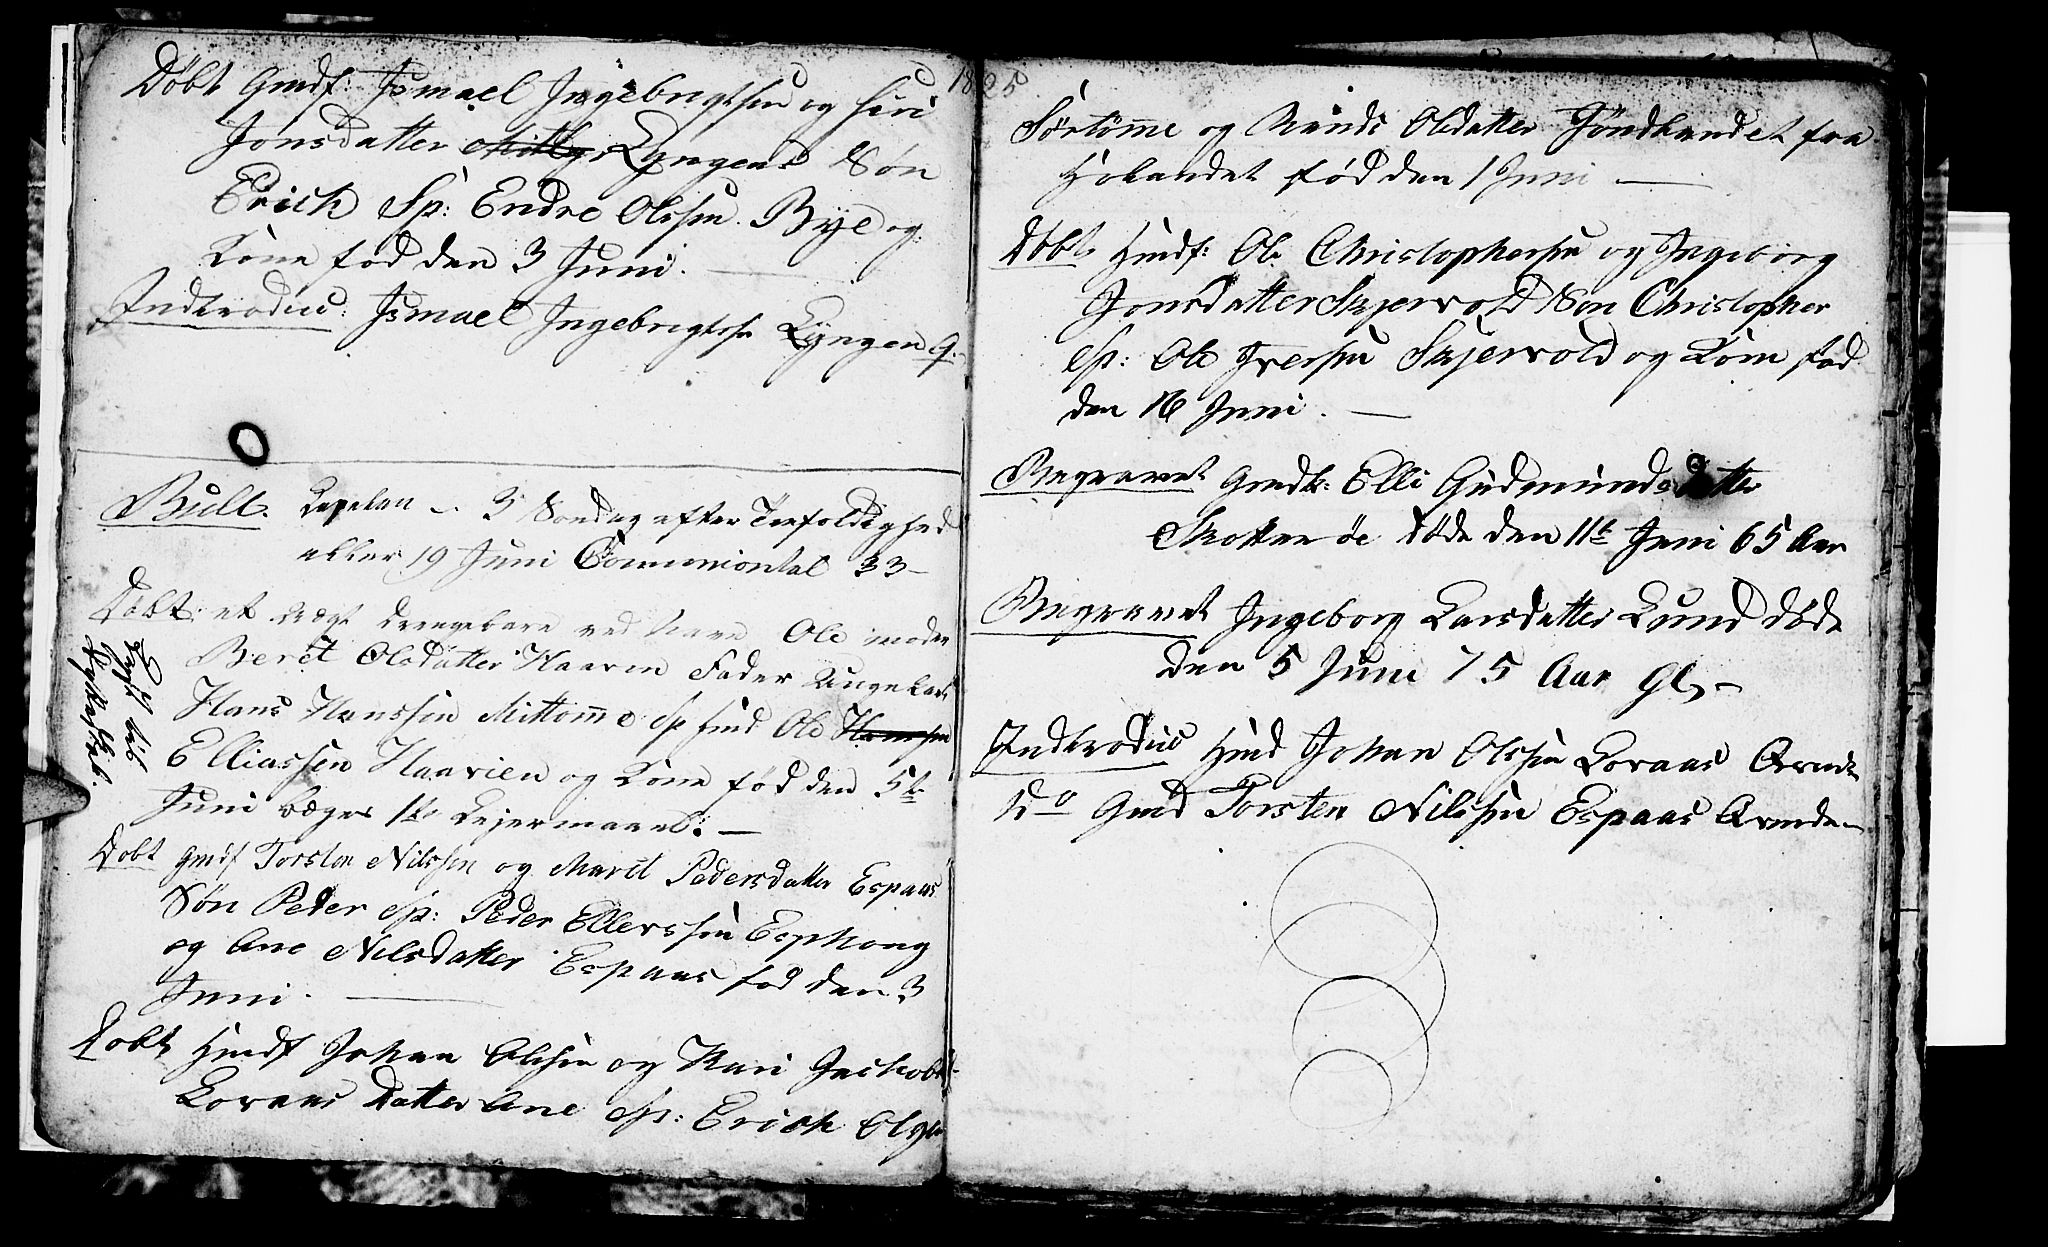 1825
Døbt Gmdf: Ismael Ingebrigtsen og Siri
Jonsdatter Lyngens Søn
Erich Sp: Endre Olssen Bye og
Kone fød den 3 Juni.
Indtrodus: Ismael Ingebrigtsen Lyngen Q:
Bull. Kapelan 3 Søndag after Trefoldighed
eller 19 Juni Communiontal 33
Døbt: et Drengebarn ved Navn Ole moder
Beret Olsdatter Haaven Fader Ungekarl
Hans Hanssen Mittomme Sp Hmd Ole Hanssen
Elliassen Haavien og Kone fød den 5te
Juni begges 1te Lejermaael:
Døbt Gmdf Torsten Nilssen og Marit Pedersdatter Espaas
Søn Peder Sp: Peder Ellevssen Esphoug
og Ane Nilsdatter Espaas fød den 3
Juni.
Døbt Hmdf Johan Olssen og Kari Jachobs
Loraas Datter Ane Sp: Erich
Sørtømme og Randi Olsdatter fra
Holandet fød den 1 Juni
Døbt Hmdf: Ole Christophersen og Ingeborg
Jonsdatter Skjervold Søn Christopher
Sp: Ole Iversen Skjervold og Kone fød
den 16 Juni.
Begravet Gmdk: Elli Gudmundsdatter
døde den 11te Juni 65 Aar
Begravet Ingeborg Larsdatter Lund døde
den 5 Juni 75 Aar Gl,
Indtrodus Hmd Johan Olssen Loraas Qvinde
Do Gmd Torsten Nilssen Espaas Qvinde